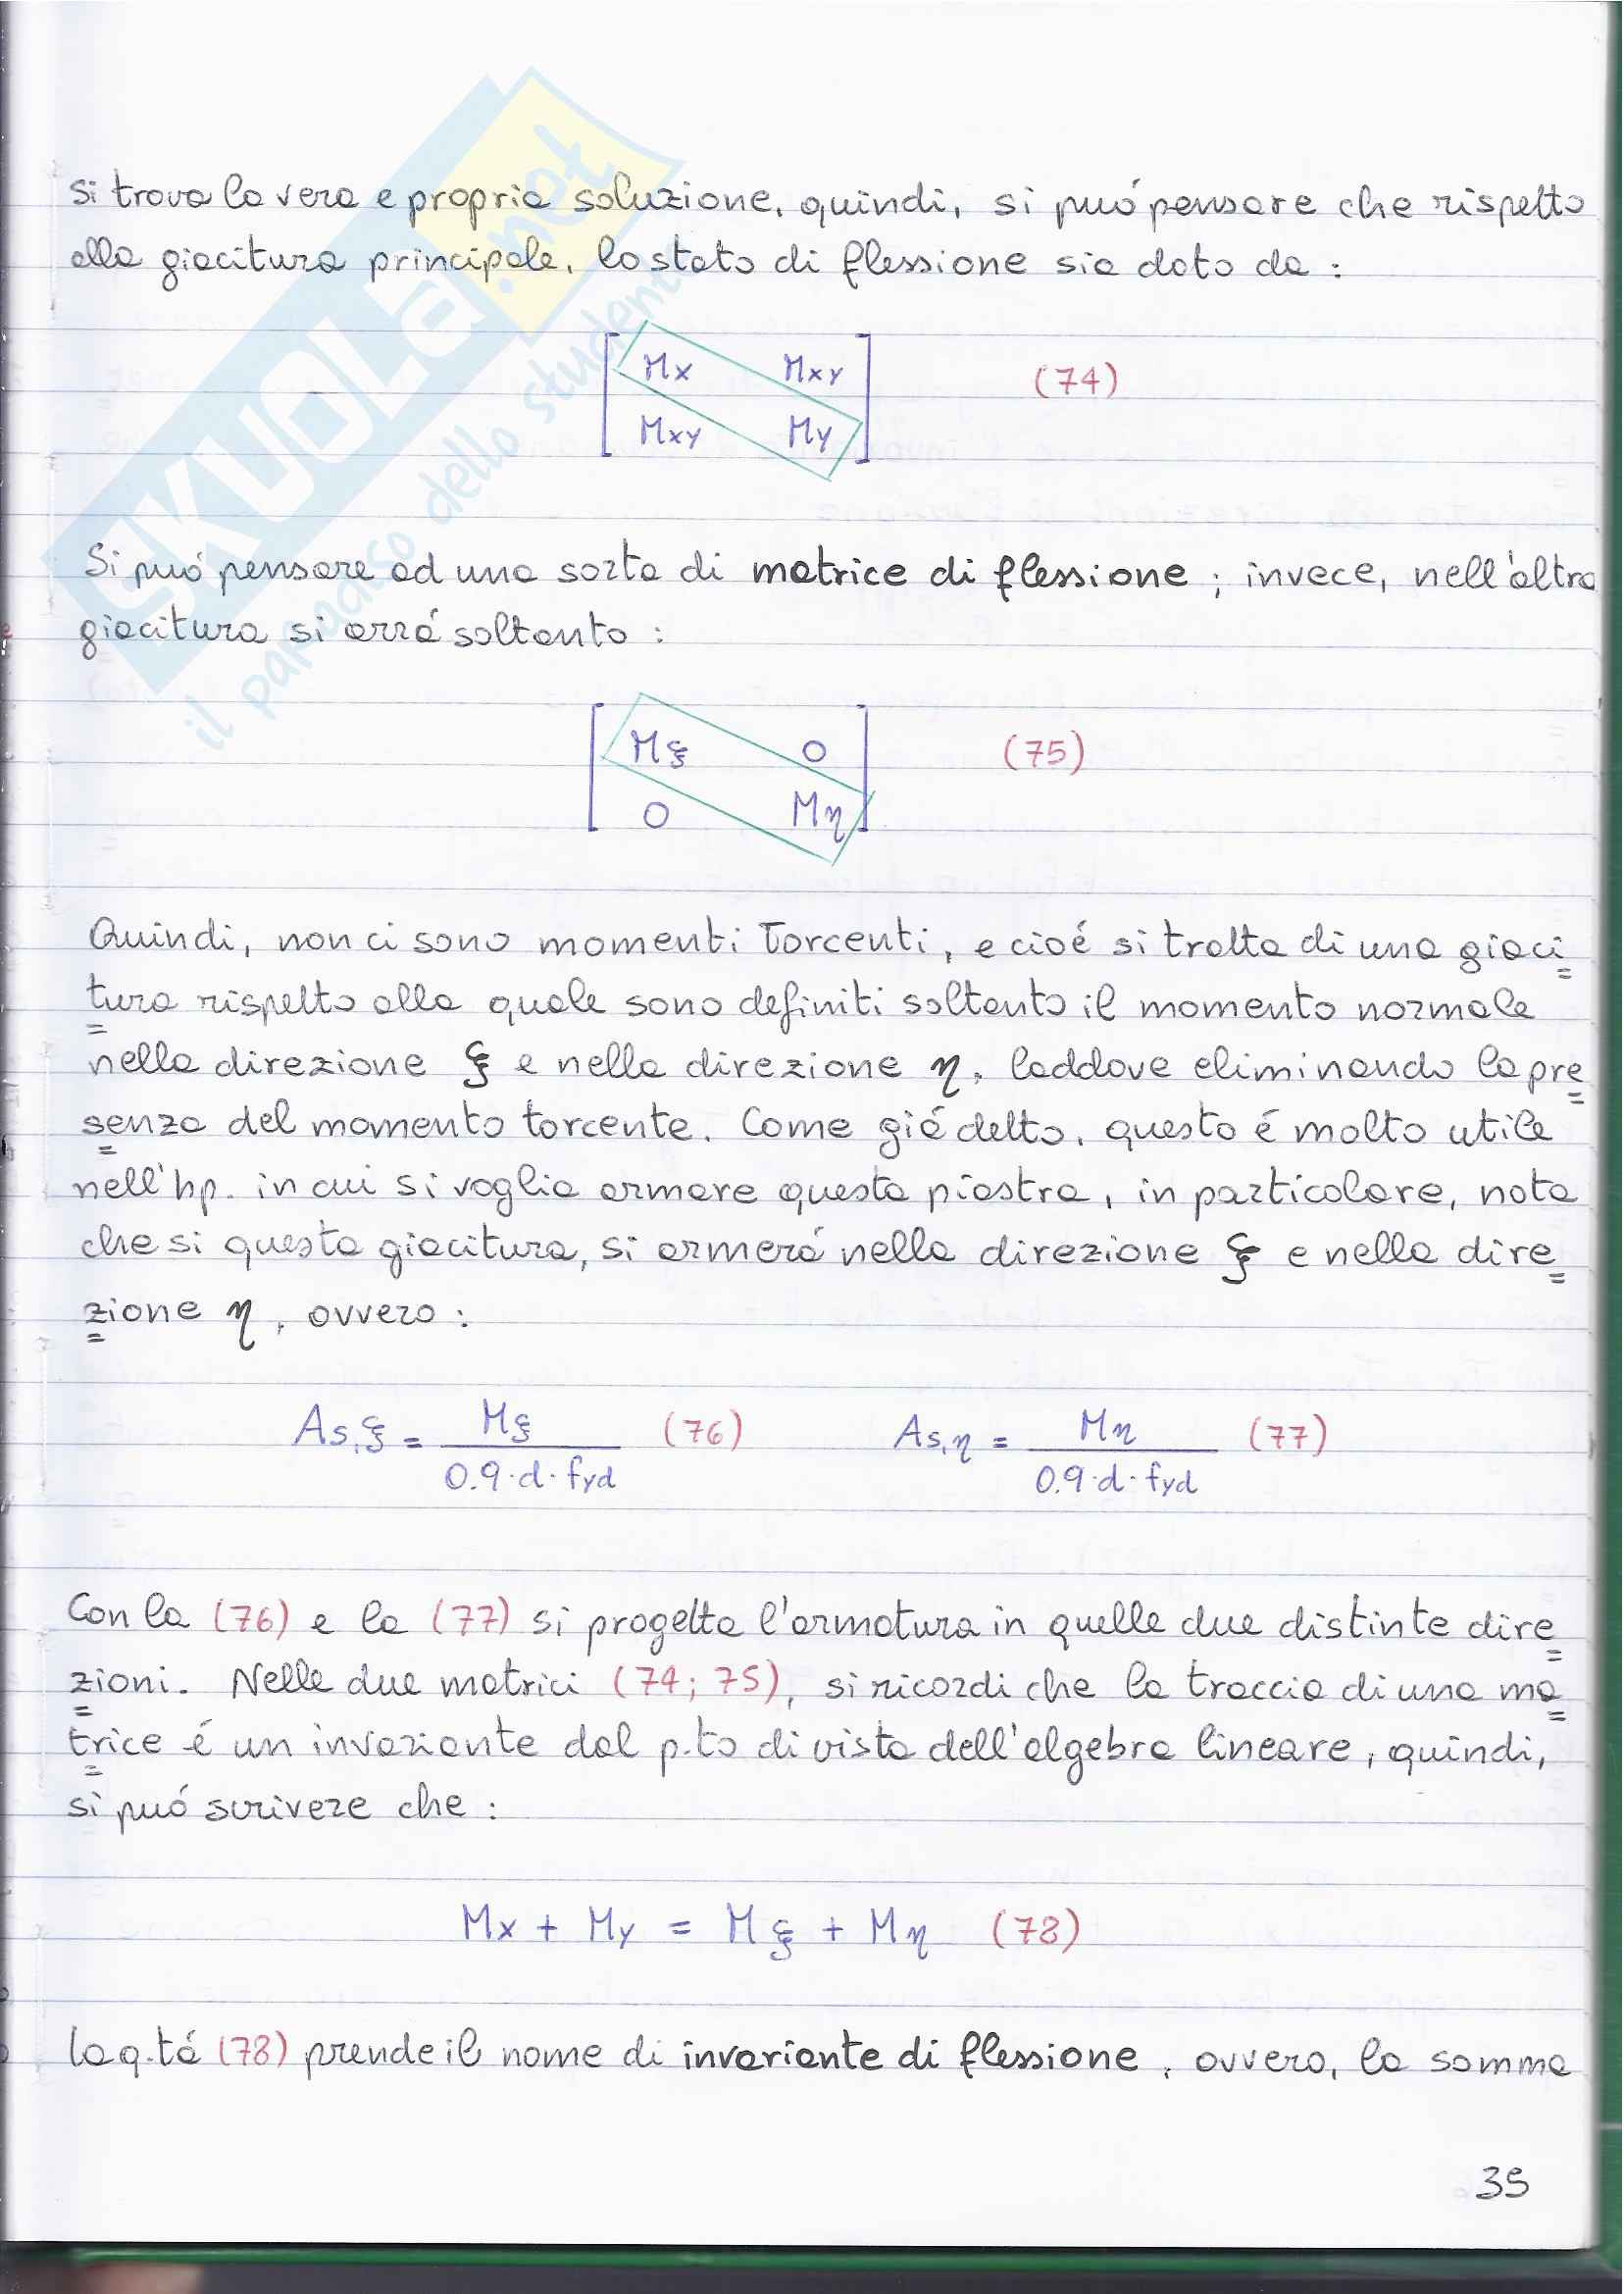 si trova la vera e propria soluzione, quindi, si può pensare che rispetto
alla giacitura principale, lo stato di flessione sia dato da :
[ Mx Mxy ] (74)
[ Mxy My ]
Si può pensare ad una sorta di matrice di flessione ; invece, nell'altra
giacitura si avrá soltanto :
[ Mξ 0 ] (75)
[ 0 Mη ]
Quindi, non ci sono momenti Torcenti, e cioé si tratta di una giaci=
=tura rispetto alla quale sono definiti soltanto il momento normale
nella direzione ξ e nella direzione η, laddove eliminando la pre=
=senza del momento torcente. Come giá detto, questo é molto utile
nell'hp. in cui si voglia armare questa piastra, in particolare, nota
che si questa giacitura, si armerá nella direzione ξ e nella dire=
=zione η, ovvero :
As,ξ = Mξ / 0.9·d·fyd (76) As,η = Mη / 0.9·d·fyd (77)
Con la (76) e la (77) si progetta l'armatura in quelle due distinte dire=
=zioni. Nelle due matrici (74; 75), si ricordi che la traccia di una ma=
=trice é un invariante dal p.to di vista dell'algebra lineare, quindi,
si puó scrivere che :
Mx + My = Mξ + Mη (78)
la q.tá (78) prende il nome di invariante di flessione, ovvero, la somma
35
SKUOLA.net
il paradiso dello studente